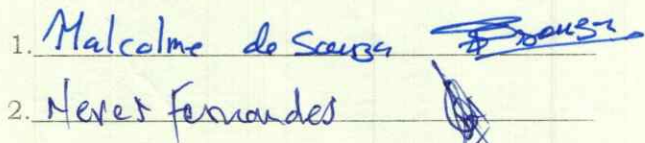 1. Malcolme de Souza DSouza
2. Neves Fernandes